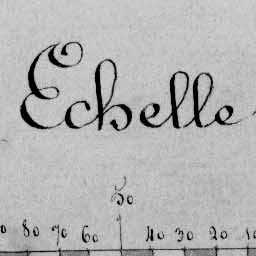 Echelle
50
80 70 60 40 30 20